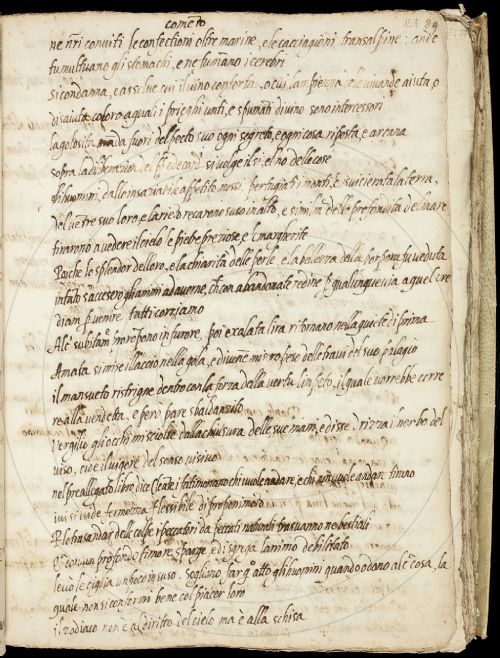 come to
158 89
ne nri conuiti le confectioni oltre marine, e le cacciagioni transalpine: onde
tumultuano gli stomachi, e ne fumano i cerebri
si condanna, e assolue cui il uino conforta, o cui la e le uiuande aiuta, o
disaiuta coloro a quali i prieghi unti, e spumati di uino sono intercessori
la golosità manda fuori del petto suo ogni segreto, e ogni cosa riposta, e arcana
sopra la del si uolge il si, el no delle cose
Gli huomini, dallo insatiabile appetito mossi, i monti, e isuicierata la terra,
del uentre suo loro, e lariēto recarono suso in alto, e simil delle profondità del mare
tirarono a uedere il cielo le pietre preziose, e le margherite
Poiche lo splendor dell oro, e la chiarità delle perle e la bellezza della porpora fu ueduta
intāto s'accesero gli animi ad auerne, ch con abandonate redine p qualunque uia a quel cre
diam puenire tutti corriano
Alc subitam prorōpono in furore, poi exalata lira ritornano nella quiete di prima
Amata si mise il laccio nella gola, e diuēne misero peso delle traui del suo palagio
il mansueto ristrigne dentro con la forza della uertu l'inpeto, il quale uorrebbe corre
re alla uendetta, e pero pare sbaldansito
Vergilio gli occhi mi sciolse dalla chiusura delle sue mani, e disse drizza il nerbo del
uiso, cioe il uigore del senso uisiuo
nel preallegato libro dice Cleāte i fati menano chi uuole andare, e chi non uuole andare tirano
iui si uide fermezza flessibile di
P le trasandar delle colpe i peccatori da peccati naturali trasuanno ne bestiali
Q con un profondo timore sparge, e disgrega l'animo debilitato
leuò le ciglia un poco in suso. Sogliono far q atto gli huomini quando odono alc cosa, la
quale non si conformi bene col piacer loro
il zodiaco non è al diritto del cielo ma è alla schisa